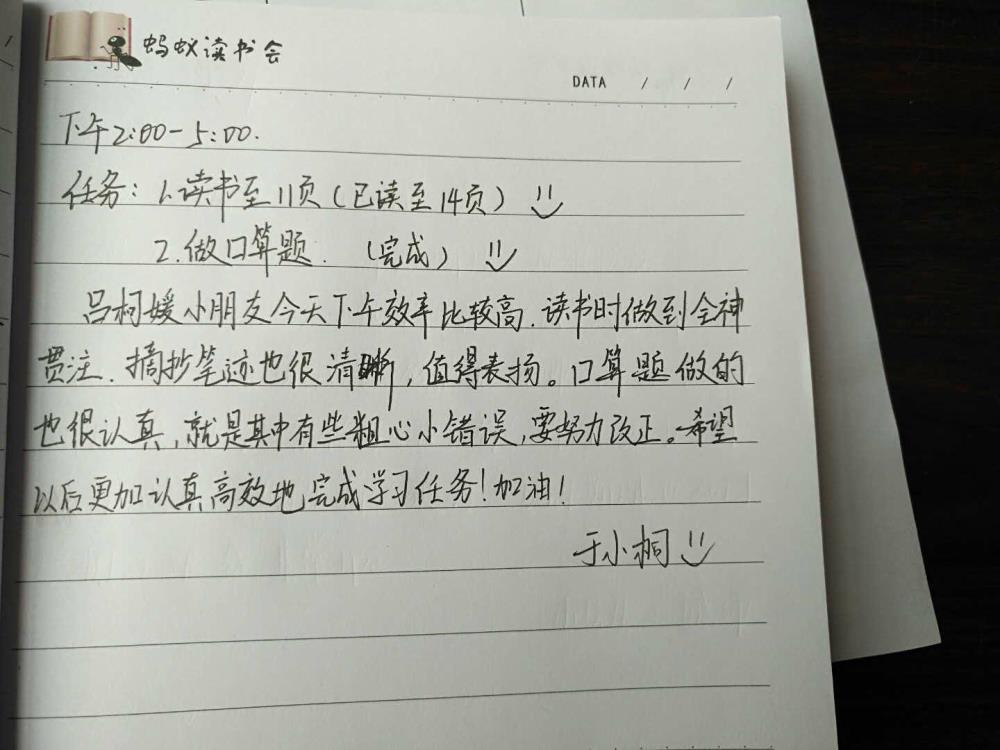 蚂蚁读书会
DATA / / /
下午2:00-5:00.
任务：1.读书至11页(已读至14页)
2.做口算题.(完成)
吕柯媛小朋友今天下午效率比较高.读书时做到全神
贯注.摘抄笔迹也很清晰,值得表扬。口算题做的
也很认真,就是其中有些粗心小错误,要努力改正。希望
以后更加认真高效地完成学习任务!加油!
于小桐